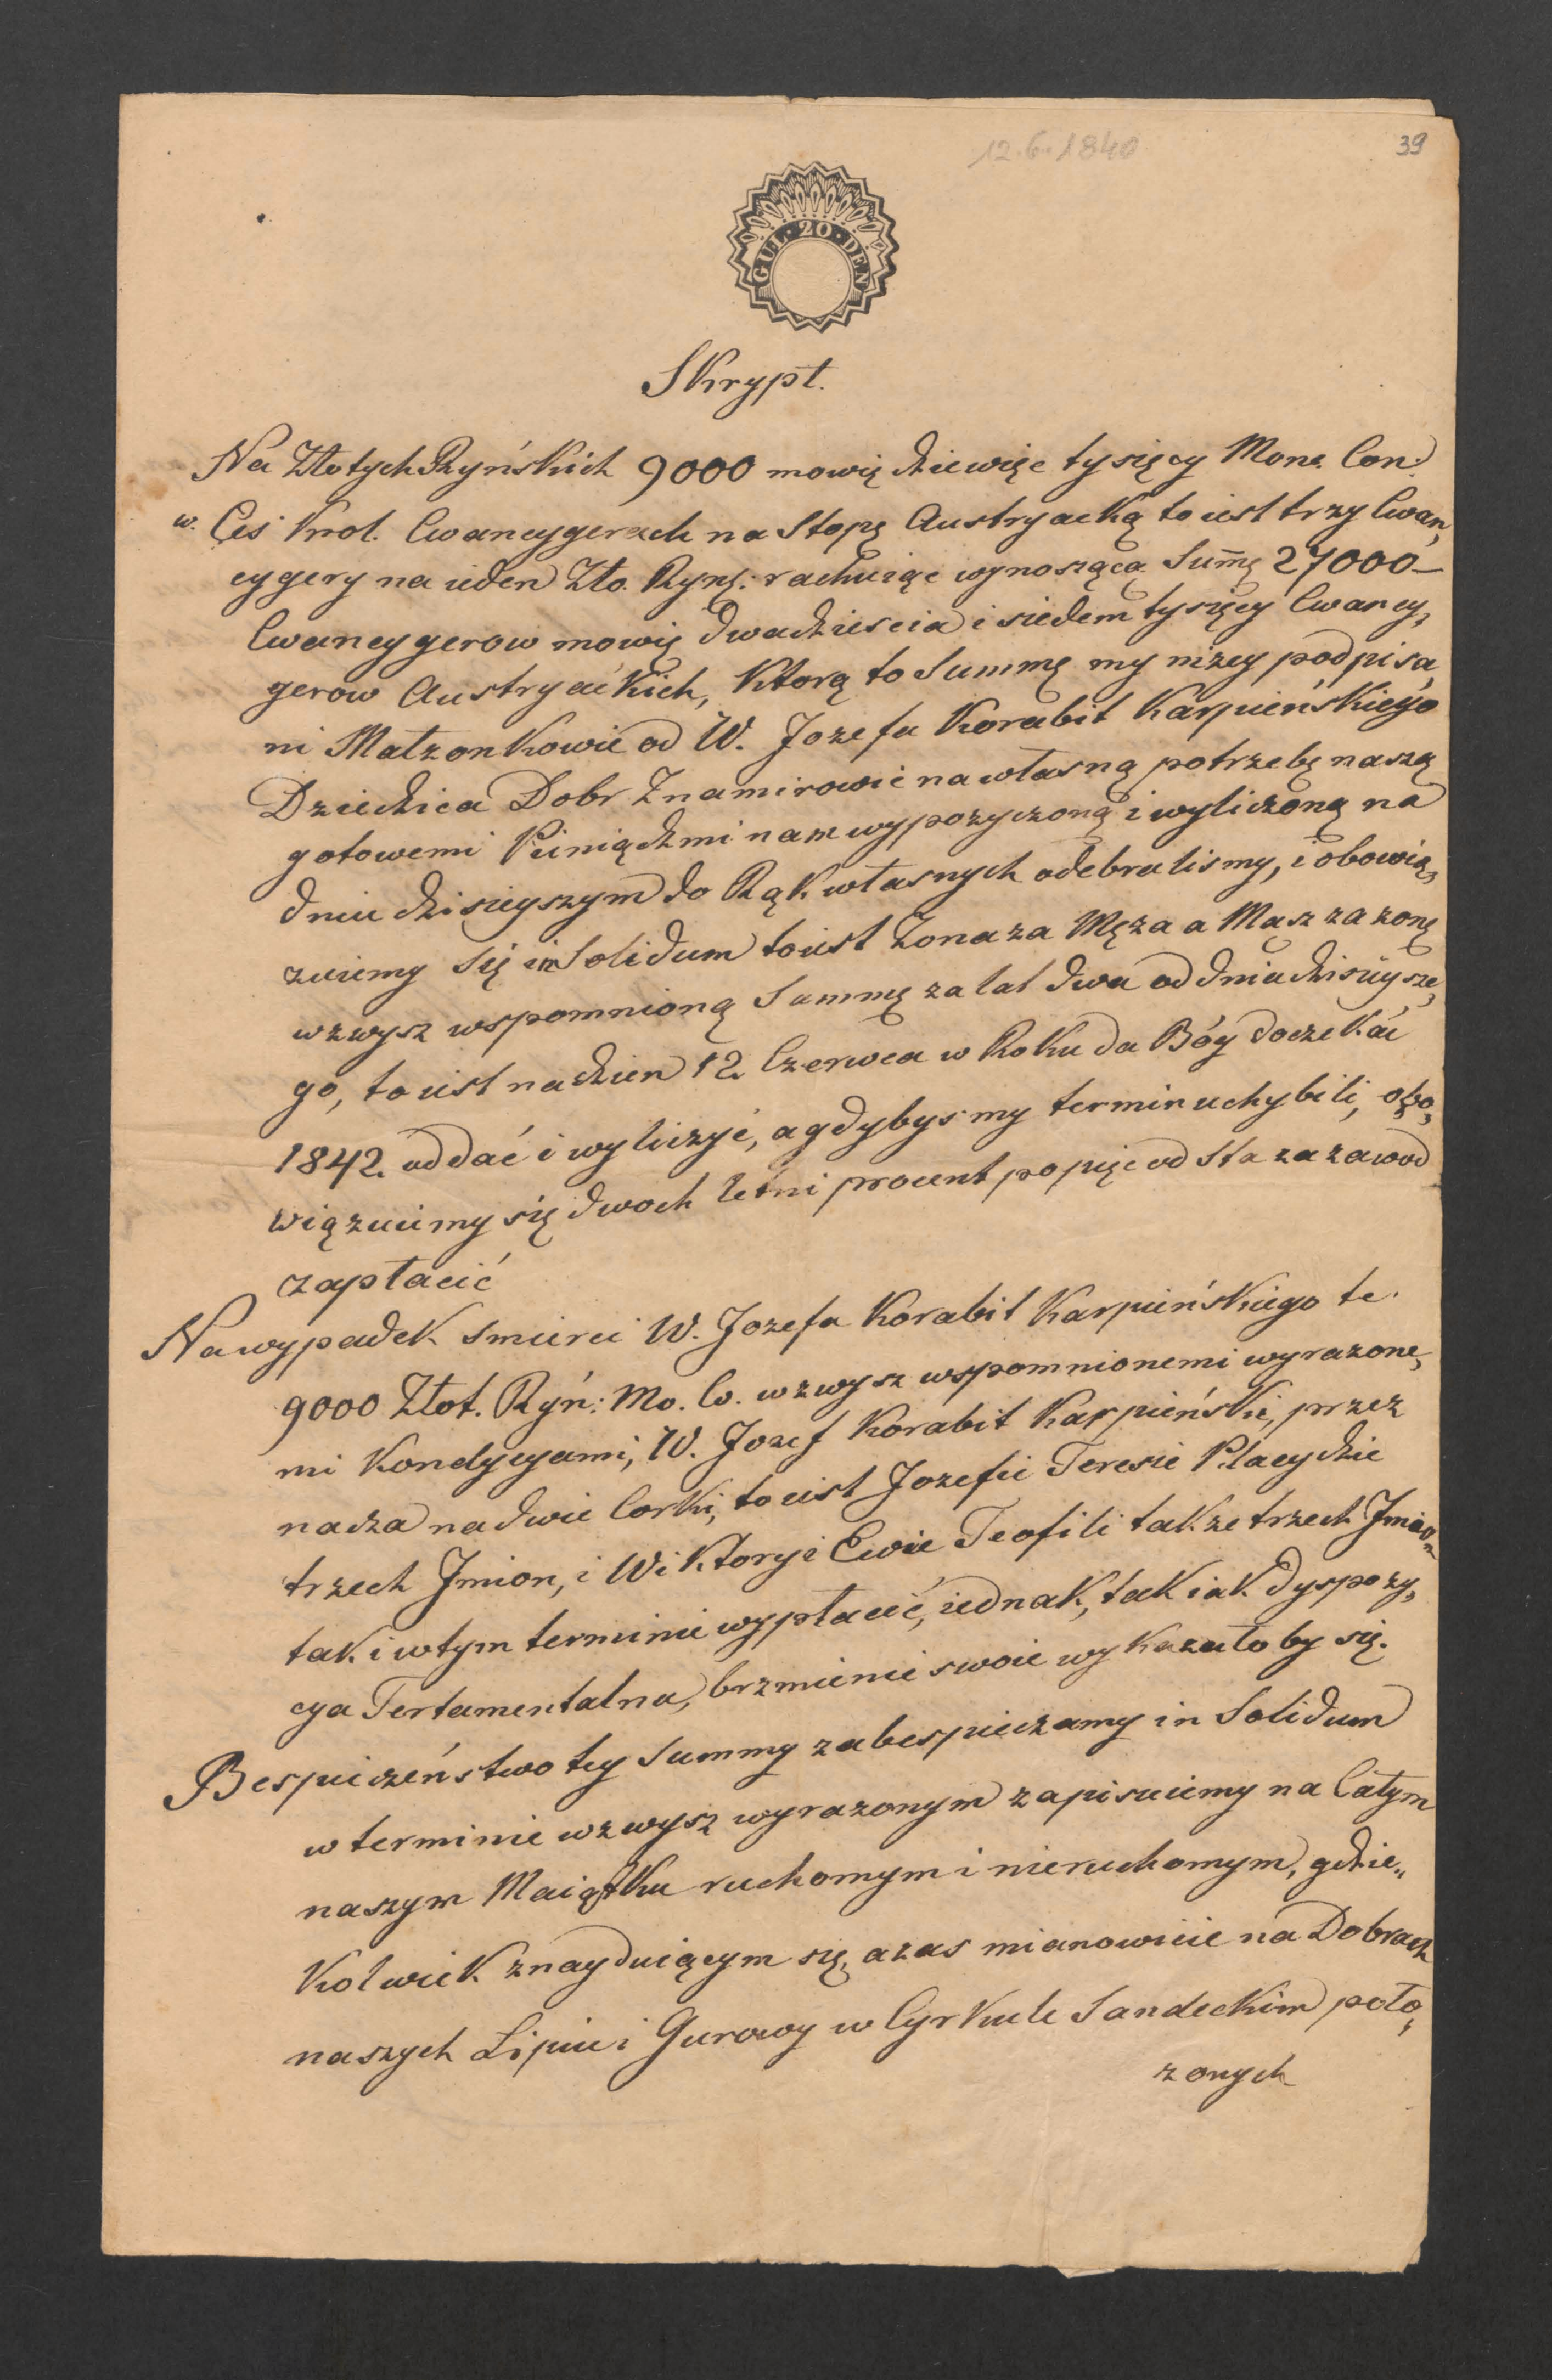 12.6.1840
39
GUL·20·DEN
Skrypt.
Na Złotych Ryńskich 9000 mowię dziewięc tysięcy Mone. Con:
w. Ces Krol. Cwancygerach na Stopę Austryacką to iest trzy Cwan„
cygery na ieden Zło. Ryns: rachuiąc wynoszącą Sum̄ę 27000–
Cwancygerow mowię dwadziescia i siedem tysięcy Cwancy„
gerow Austryackich, Ktorą to Summę my niżey podpisa„
ni Małzonkowie od W. Jozefa Korabit Karpieńskiego
Dziedzica Dobr Znamirowic na własną potrzebę naszą
gotowemi Pieniądzmi nam wypozyczoną i wyliczoną na
dniu dzisieyszym do Rąk własnych odebralismy, i obowią„
zuiemy się in Solidum to iest Zona za Męza a Mąsz za zonę
wzwysz wspomnioną Summę za lat dwa od dnia dzisieysze„
go, to iest na dzien 12. Czerwca w Roku da Bóg doczekać
1842. oddać i wyliczyć, a gdybysmy termin uchybili, obo„
wiązuiemy się dwoch letni procent po pięc od Sta za zawod
zapłacić
Na wypadek smierci W. Jozefa Korabit Karpieńskiego te
9000 Złot. Ryń: Mo. Co. wzwysz wspomnionemi wyrazone„
mi Kondycyami, W. Jozef Korabit Karpieński, przez
nacza na dwie Corki, to iest Jozefie Teresie Placydzie
trzech Jmion, i Wiktoryi Ewie Teofili takze trzech Jmion
tak i w tym terminie wypłacić, iednak, tak iak dyspozy„
cya Tertamentalna, brzmienie swoie wykazało by się.
Bespieczeństwo tey Summy zabespieczamy in Solidum
w terminie wzwysz wyrazonym zapisuiemy na Całym
naszym Maiątku ruchomym i nieruchomym, gdzie„
Kolwiek znayduiącym się, a zas mianowicie na Dobrach
naszych Lipiu i Gurowy w Cyrkule Sandeckim poło„
zonych